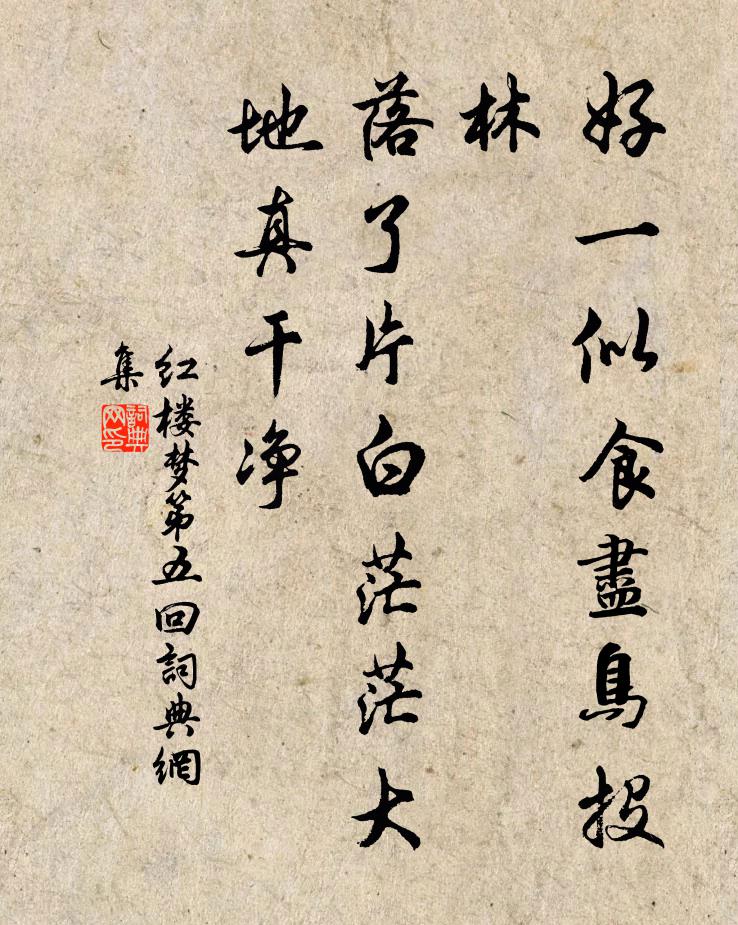 好一似食盡鳥投
林
落了片白茫茫大
地真干净
红楼梦第五回詞典網
集
詞典
网印